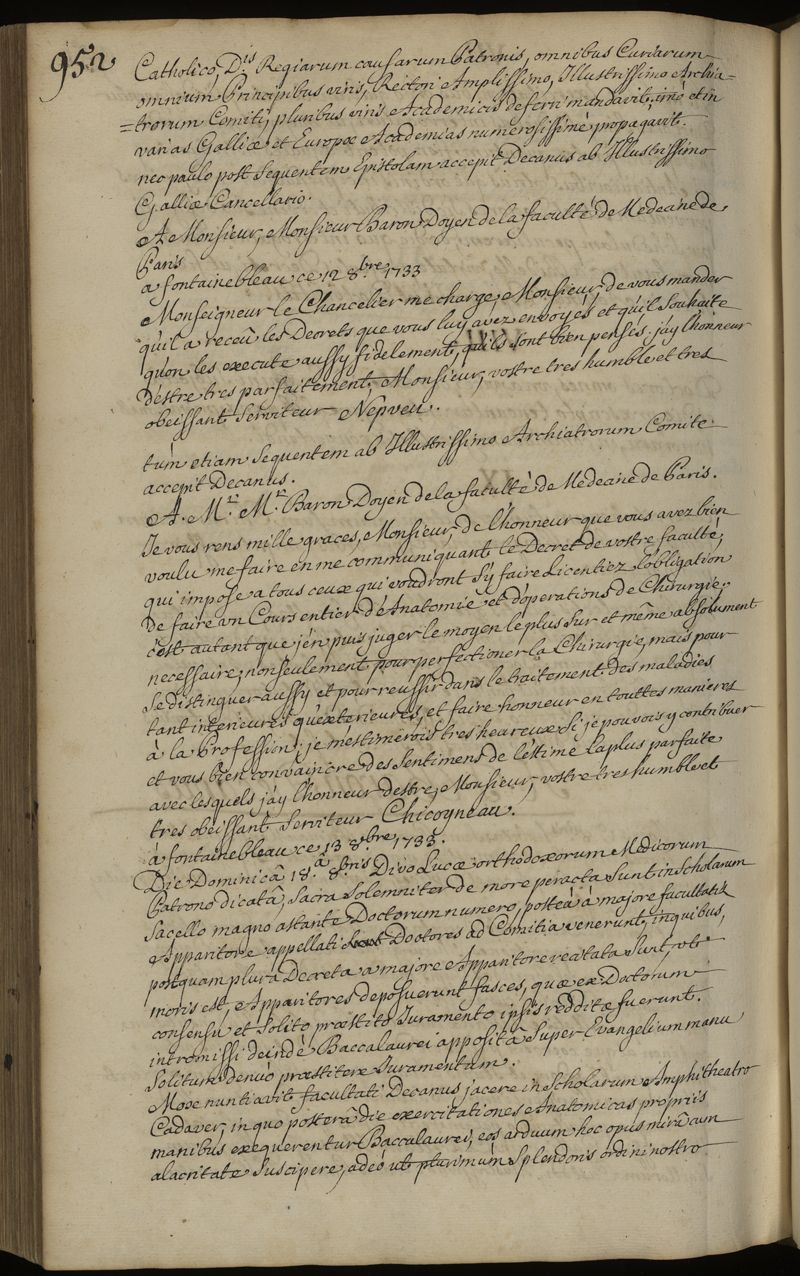 952
Catholico, D.is Regiarum causarum Patronis, omnibus Curiarum
omnium Principibus viris, Rectori Amplissimo, Illustrissimo Archia=
=trorum Comiti, pluribus viris Academicis deferri mandavit, imò et in
varias Galliæ et Europæ Academias numerosissimè propagavit.
nec paulo post Sequentem Epistolam accepit Decanus ab Illustrissimo
Galliæ Cancellario.
A Monsieur, Monsieur Baron Doyen de la faculté de Medecine de
Paris
a fontainebleau ce 12 8.bre 1733
Monseigneur le Chancelier me charge, Monsieur de vous mander
qu'il a receu les Decrets que vous luy avez envoyés et qu'il Souhaite
qu'on les execute aussy fidelement, qu'ils sont bien pensés. j'ay l'honneur
d'estre tres parfaitement, Monsieur, vostre tres humble et tres
obeissant Serviteur Nepveu.
tùm etiam Sequentem ab Illustrissimo Archiatrorum Comite
accepit Decanus.
A. M.r M.r Baron Doyen de la faculté de Medecine de Paris.
Je vous rens mille graces, Monsieur, de l'honneur que vous avez bien
voulu me faire en me communiquant le Decret de vostre faculté,
qui impose a tous ceux qui voudront s'y faire Licentiez l'obligation
de faire un Cours entier d'Anatomie et d'operations de Chirurgie;
c'est autant que j'en puis juger le moyen le plus Sur et même absolument
necessaire, nonseulement pour perfectioner la Chirurgie, mais pour
Se distinquer aussy et pour reussir dans le traitement des maladies
tant interieures qu'exterieures, et faire honneur en touttes manieres
à la Profession; je m'estimerois tres heureux Si je pouvois y contribuer
et vous bien convaincre des Sentimens de l'estime la plus parfaite
avec lesquels j'ay l'honneur d'estre, Monsieur, vostre tres humble et
tres obeissant Serviteur Chicoyneau.
à fontainebleau ce 13 8.bre 1733.
Die Dominicâ 18.â 8.bris Divo Lucæ orthodoxorum Medicorum
Patrono dicatâ, Sacra Solemniter de more peracta Sunt in Scholarum
Sacello magno astante Doctorum numero, posteà à majore facultatis
Apparitore appellati Doctores ad Comitia venerunt, in quibus,
postquam plura Decreta a majore Apparitore recitata Sunt, uti
moris est, Apparitores deposuerunt fasces, quæ ex Doctorum
consensu et Solito præstito Juramento ipsis redditæ fuerunt.
intromissi deindè Baccalaurei appositâ Super Evangelium manu
Solitum denuò præstitere Juramentum.
Mox nuntiavit facultati Decanus jacere in Scholarum Amphitheatro
Cadaver, in quo posterâ die exercitationes Anatomicas propriis
manibus exequerentur Baccalaurei, eos arduum hoc opus mirâ cum
alacritate Suscipere, adeò ut plurimùm Splendoris ordini nostro